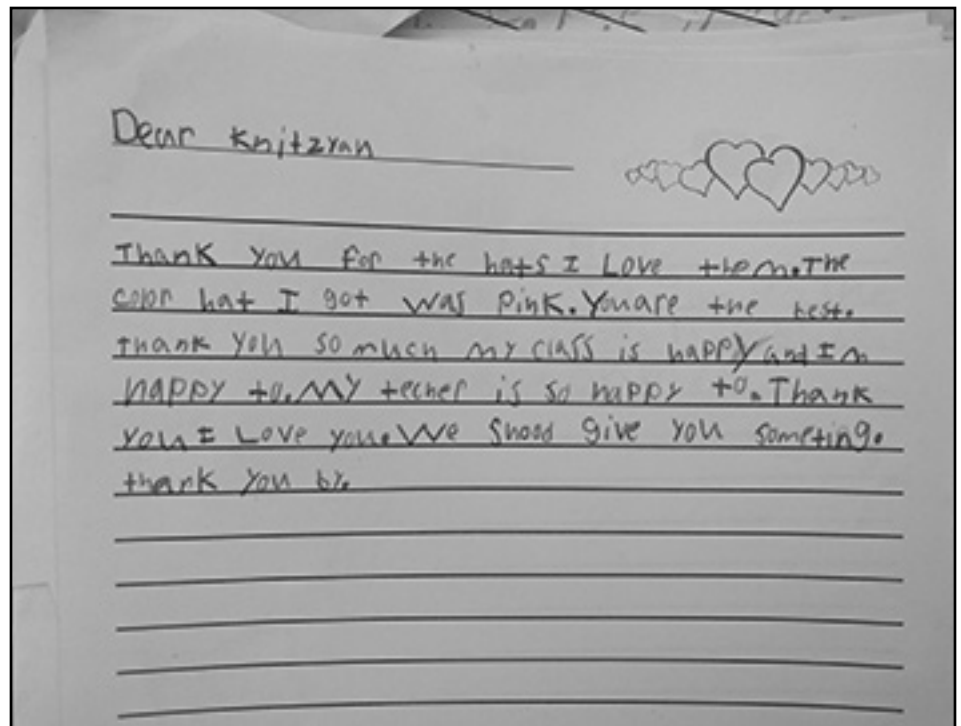 Dear Knitzyan
Thank you for the hats I Love them. The
color hat I got was pink. You are the best.
thank you so much my class is happy and Im
happy to. My techer is so happy to. Thank
you I Love you. We shood give you someting.
thank you by.